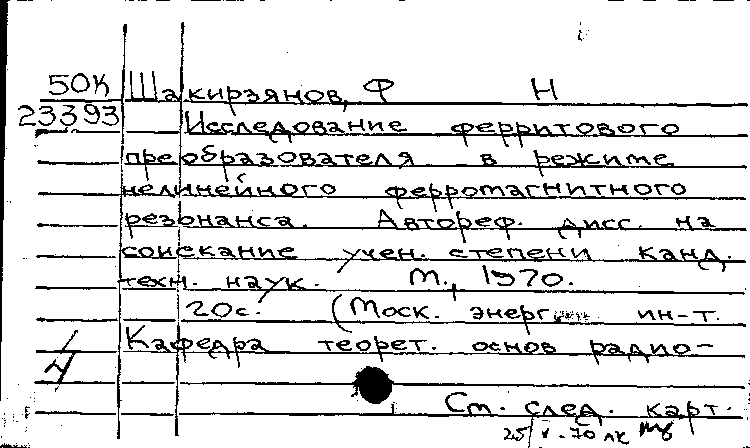 50К Шакирзянов, Ф Н
23393 Исследование ферритового
преобразователя в режиме
нелинейного ферромагнитного
резонанса. Автореф. дисс. на
соискание учен. степени канд.
техн. наук. М., 1970.
20с. (Моск. энерг. ин-т.
Кафедра теорет. основ радио-
См. след. карт.